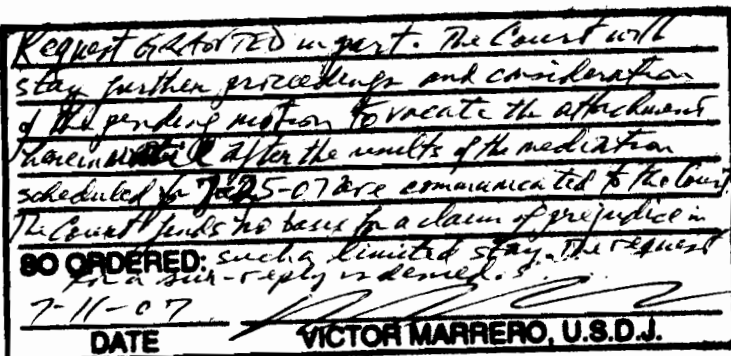 Request GRANTED in part. The Court will
stay further proceedings and consideration
of the pending motion to vacate the attachment
herein until after the results of the mediation
scheduled for 7-25-07 are communicated to the Court.
The Court finds no basis for a claim of prejudice in
SO ORDERED: such a limited stay. The request
for a sur-reply is denied.
7-11-07
DATE VICTOR MARRERO, U.S.D.J.